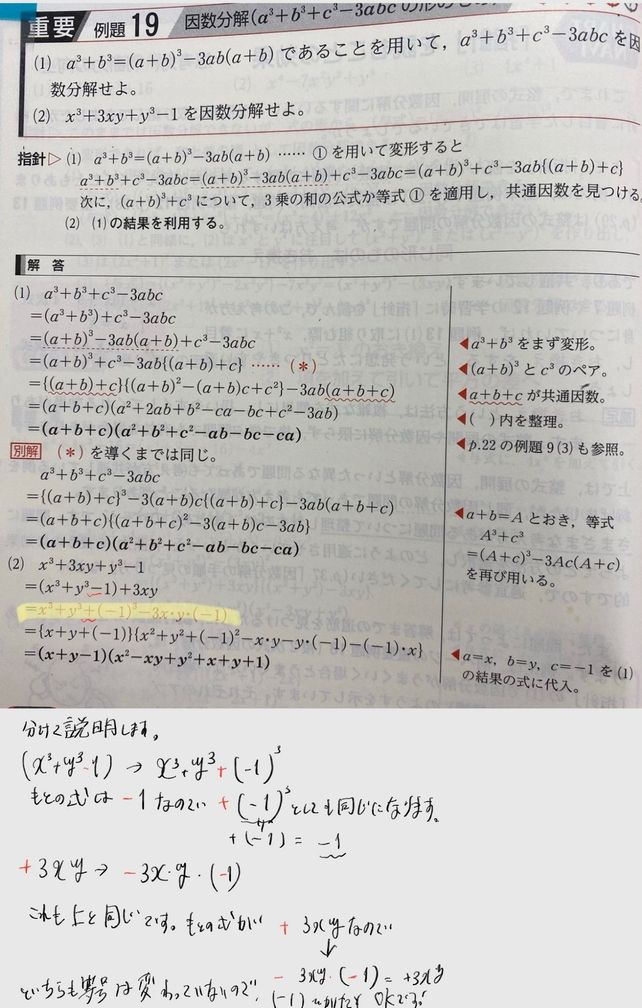 重要 例題 19 因数分解(a³+b³+c³−3abc の形の
(1) a³+b³=(a+b)³−3ab(a+b) であることを用いて，a³+b³+c³−3abc を因
数分解せよ。
(2) x³+3xy+y³−1 を因数分解せよ。
指針▷ (1) a³+b³=(a+b)³−3ab(a+b) …… ① を用いて変形すると
a³+b³+c³−3abc=(a+b)³−3ab(a+b)+c³−3abc=(a+b)³+c³−3ab{(a+b)+c}
次に，(a+b)³+c³ について，3乗の和の公式か等式 ① を適用し，共通因数を見つける。
(2) (1)の結果を利用する。
解答
(1) a³+b³+c³−3abc
=(a³+b³)+c³−3abc
=(a+b)³−3ab(a+b)+c³−3abc
◀a³+b³ をまず変形。
=(a+b)³+c³−3ab{(a+b)+c} ……(*)
◀(a+b)³ と c³ のペア。
={(a+b)+c}{(a+b)²−(a+b)c+c²}−3ab(a+b+c)
◀a+b+c が共通因数。
=(a+b+c)(a²+2ab+b²−ca−bc+c²−3ab)
◀( )内を整理。
=(a+b+c)(a²+b²+c²−ab−bc−ca)
◀p.22 の例題 9(3)も参照。
別解 (*)を導くまでは同じ。
a³+b³+c³−3abc
={(a+b)+c}³−3(a+b)c{(a+b)+c}−3ab(a+b+c)
=(a+b+c){(a+b+c)²−3(a+b)c−3ab}
=(a+b+c)(a²+b²+c²−ab−bc−ca)
◀a+b=A とおき，等式
A³+c³
=(A+c)³−3Ac(A+c)
を再び用いる。
(2) x³+3xy+y³−1
=(x³+y³−1)+3xy
=x³+y³+(−1)³−3x・y・(−1)
={x+y+(−1)}{x²+y²+(−1)²−x・y−y・(−1)−(−1)・x}
=(x+y−1)(x²−xy+y²+x+y+1)
◀a=x, b=y, c=−1 を (1)
の結果の式に代入。
分けて説明します。
(x³+y³-1) → x³+y³+(-1)³
もとの式は -1 なので +(-1)³としても同じになります。
+(-1) = -1
+3xy → -3x・y・(-1)
これも上と同じです。もとの式が +3xyなので
↓
-3xy・(-1) = +3xy
どちらも 符号は変わっていないので、